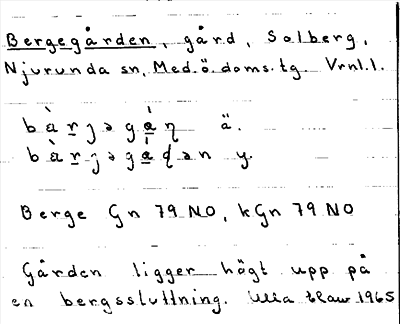 Bergegården, gård, Solberg,
Njurunda sn, Med. ö. doms. tg. Vrnl.l.
bà̱rjəgá̱ɳ ä.
bà̱rjəgá̱dən y.
Berge Gn 79 NO, kGn 79 NO
Gården ligger högt upp på
en bergssluttning. Ulla 1965